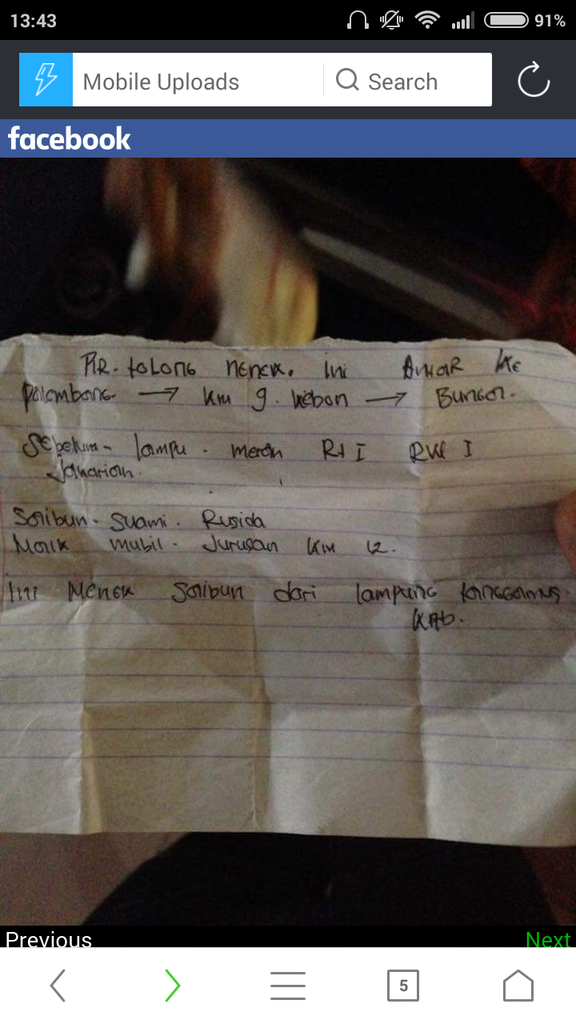 13:43
91%
Mobile Uploads
Search
facebook
PIR. toLonG nenek. Ini Antar ke
palembang → km 9. kebon → Bunga.
Sebelum- lampu. merah Rt I RW I
Saribun- suami. Rusida
Naik mubil- Jurusan km 12.
Ini Nenek Saribun dari lampung tanggamus.
KAb.
Previous
Next
5